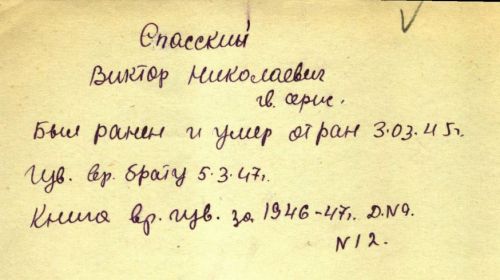 Спасский
Виктор Николаевич
гв. серж.
Был ранен и умер от ран 3.03.45г.
Изв. вр. брату 5.3.47г.
Книга вр. изв. за 1946-47г. Д.№9.
N12.